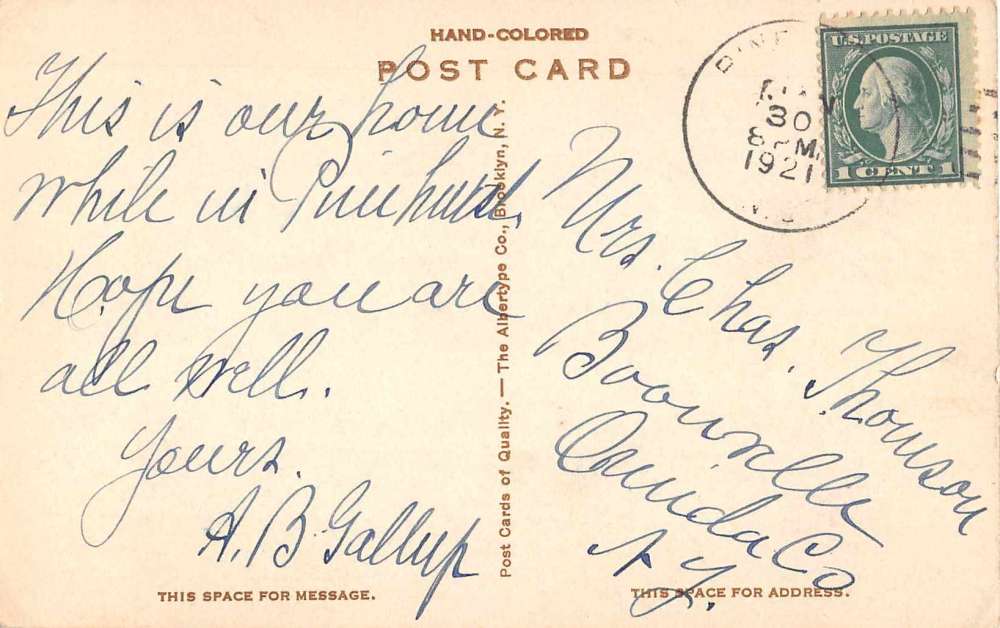 HAND-COLORED
POST CARD
This is our home
while in Pinehurst.
Hope you are
all well.
Yours.
A. B. Gallup
THIS SPACE FOR MESSAGE.
Post Cards of Quality. — The Albertype Co., Brooklyn, N. Y.
PINE
NOV
30
8 PM
1921
N.C
U.S. POSTAGE
1 CENT 1
Mrs. Chas. Thomson
Boonville
Oneida Co
N.Y.
THIS SPACE FOR ADDRESS.